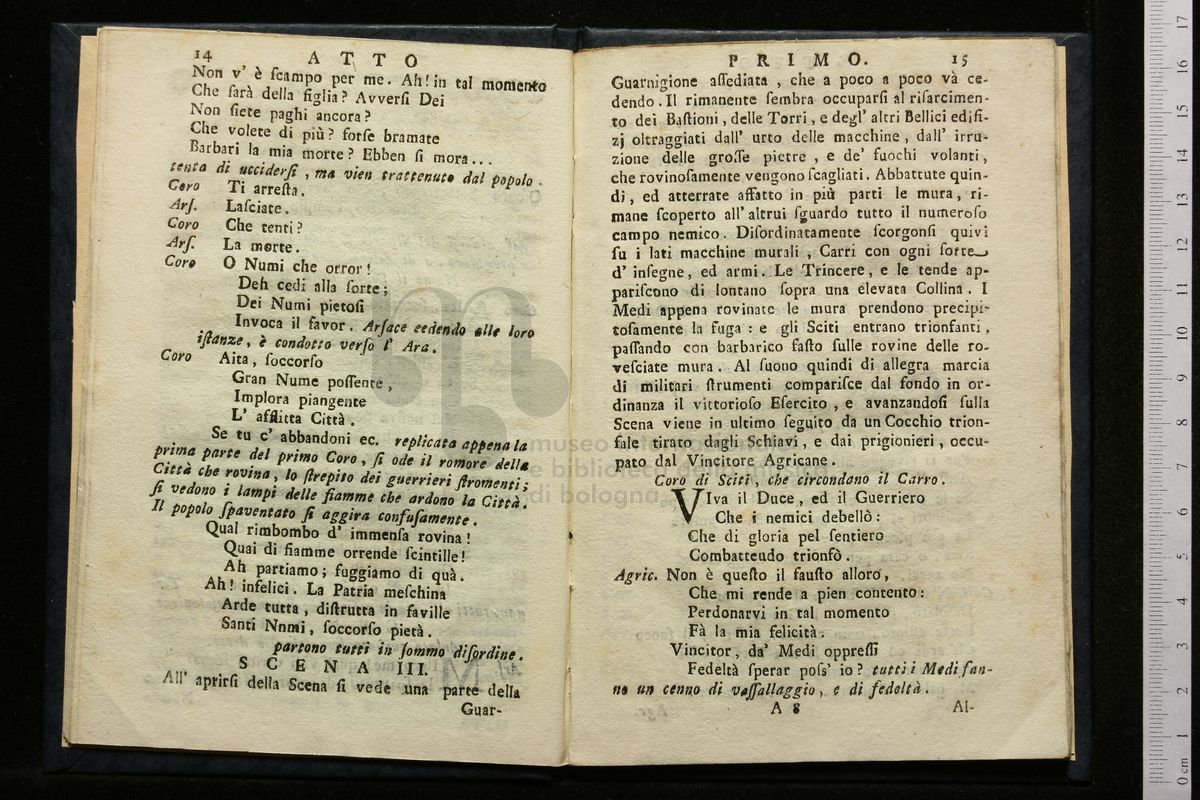 14 ATTO
Non v' è ſcampo per me. Ah! in tal momento
Che ſarà della figlia? Avverſi Dei
Non ſiete paghi ancora?
Che volete di più? forſe bramate
Barbari la mia morte? Ebben ſi mora...
tenta di ucciderſi, ma vien trattenuto dal popolo.
Coro Ti arreſta.
Arſ. Laſciate.
Coro Che tenti?
Arſ. La morte.
Coro O Numi che orror!
Deh cedi alla ſorte;
Dei Numi pietoſi
Invoca il favor. Arſace cedendo alle loro
iſtanze, è condotto verſo l' Ara.
Coro Aita, ſoccorſo
Gran Nume poſſente,
Implora piangente
L' afflitta Città.
Se tu c' abbandoni ec. replicata appena la
prima parte del primo Coro, ſi ode il romore della
Città che rovina, lo ſtrepito dei guerrieri ſtromenti;
ſi vedono i lampi delle fiamme che ardono la Città.
Il popolo ſpaventato ſi aggira confuſamente.
Qual rimbombo d' immenſa rovina!
Quai di fiamme orrende ſcintille!
Ah partiamo; fuggiamo di quà.
Ah! infelici. La Patria meſchina
Arde tutta, diſtrutta in faville
Santi Nnmi, ſoccorſo pietà.
partono tutti in ſommo diſordine.
SCENA III.
All' aprirſi della Scena ſi vede una parte della
Guar-
PRIMO. 15
Guarnigione aſſediata, che a poco a poco và ce-
dendo. Il rimanente ſembra occuparſi al riſarcimen-
to dei Baſtioni, delle Torri, e degl' altri Bellici edifi-
zj oltraggiati dall' urto delle macchine, dall' irru-
zione delle groſſe pietre, e de' fuochi volanti,
che rovinoſamente vengono ſcagliati. Abbattute quin-
di, ed atterrate affatto in più parti le mura, ri-
mane ſcoperto all' altrui ſguardo tutto il numeroſo
campo nemico. Diſordinatamente ſcorgonſi quivi
ſu i lati macchine murali, Carri con ogni ſorte
d' inſegne, ed armi. Le Trincere, e le tende ap-
pariſcono di lontano ſopra una elevata Collina. I
Medi appena rovinate le mura prendono precipi-
toſamente la fuga: e gli Sciti entrano trionfanti,
paſſando con barbarico faſto ſulle rovine delle ro-
veſciate mura. Al ſuono quindi di allegra marcia
di militari ſtrumenti compariſce dal fondo in or-
dinanza il vittorioſo Eſercito, e avanzandoſi ſulla
Scena viene in ultimo ſeguito da un Cocchio trion-
fale tirato dagli Schiavi, e dai prigionieri, occu-
pato dal Vincitore Agricane.
Coro di Sciti, che circondano il Carro.
VIva il Duce, ed il Guerriero
Che i nemici debellò:
Che di gloria pel ſentiero
Combatteudo trionfò.
Agric. Non è queſto il fauſto alloro,
Che mi rende a pien contento:
Perdonarvi in tal momento
Fà la mia felicità.
Vincitor, da' Medi oppreſſi
Fedeltà ſperar poſs' io? tutti i Medi fan-
no un cenno di vaſſallaggio, e di fedeltà.
A 8 Al-